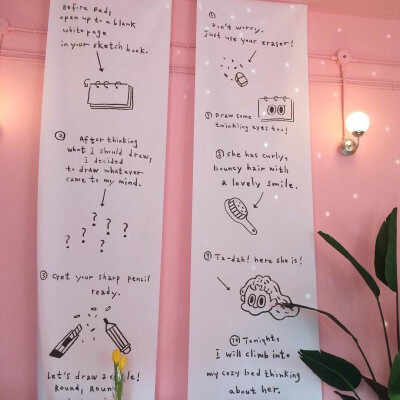 Before Bed,
open up to a blank
white page
in your sketch book.
②
After thinking
what i should draw,
i decided
to draw whatever
came to my mind.
? ? ? ? ? ?
③ Get your sharp pencil
ready.
Let's draw a
Round, Roun
⑤
Don't worry.
just use your eraser!
⑦ Draw some
twinkling eyes too!
⑧ she has curly,
bouncy hair with
a lovely smile.
⑨ Ta-dah! here she is!
⑩ Tonight,
I will climb into
my cozy bed thinking
about her.